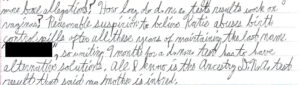 more bond allegations? How long do d.n.a.s tests results work on
vaginas? Reasonable suspicion to believe Katie abuses birth
control pills after all these years of maintaining the last name.
, so waiting 9 months for a d.n.a.s test has to have
alternative solutions. All I know is the Ancestry D.N.A.s test
result that said my mother is inbred.